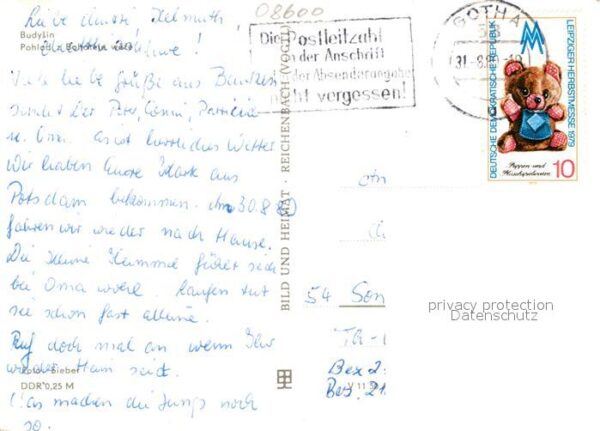 Liebe Helmuth
08600
Budyšin
Die Postleitzahl
in der Anschrift
der Absenderangabe
nicht vergessen!
GOTHA
Viele liebe Grüße aus Bautzen
sendet Der Peter,
u. Oma. Es ist herrliches Wetter
Wir haben Eure Karte aus
Potsdam bekommen. Am 30.8.
fahren wir wieder nach Hause.
Die kleine fühlt sich
bei Oma wohl. Laufen tut
sie schon fast alleine.
Ruf doch mal an wenn Ihr
wieder Heim seid.
Foto: Bieber
DDR 0,25 M
Was machen die Jungs noch
so.
BILD UND HEIMAT · REICHENBACH (VOGTL)
V 11 50
DEUTSCHE DEMOKRATISCHE REPUBLIK
LEIPZIGER HERBSTMESSE 1979
Puppen und
Plüschspielwaren
10
54 Son
Bez 2
privacy protection
Datenschutz